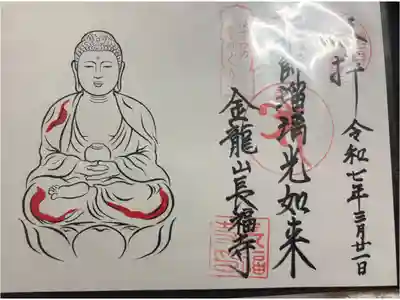 奉拝
令和七年三月廿一日
師瑠璃光如来
金龍山長福寺